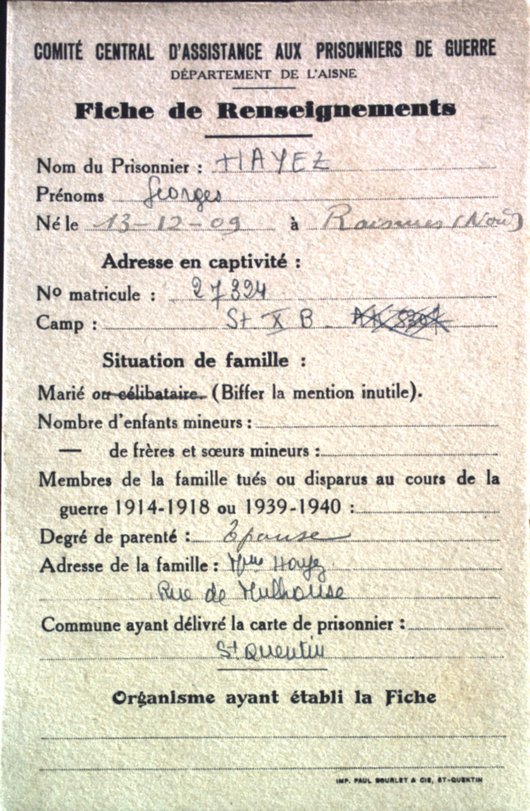 COMITÉ CENTRAL D'ASSISTANCE AUX PRISONNIERS DE GUERRE
DÉPARTEMENT DE L'AISNE
Fiche de Renseignements
Nom du Prisonnier : HAYEZ
Prénoms Georges
Né le 13-12-09 à Raismes (Nord)
Adresse en captivité :
Nº matricule : 27324
Camp : St X B
Situation de famille :
Marié ou célibataire. (Biffer la mention inutile).
Nombre d'enfants mineurs :
— de frères et sœurs mineurs :
Membres de la famille tués ou disparus au cours de la
guerre 1914-1918 ou 1939-1940 :
Degré de parenté : Epouse
Adresse de la famille : Mme Hayez
Rue de Mulhouse
Commune ayant délivré la carte de prisonnier :
St Quentin
Organisme ayant établi la Fiche
IMP. PAUL BOURLET & CIE, ST-QUENTIN